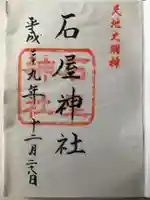 天地大明神
石屋神社
平成二十九年十二月二八日